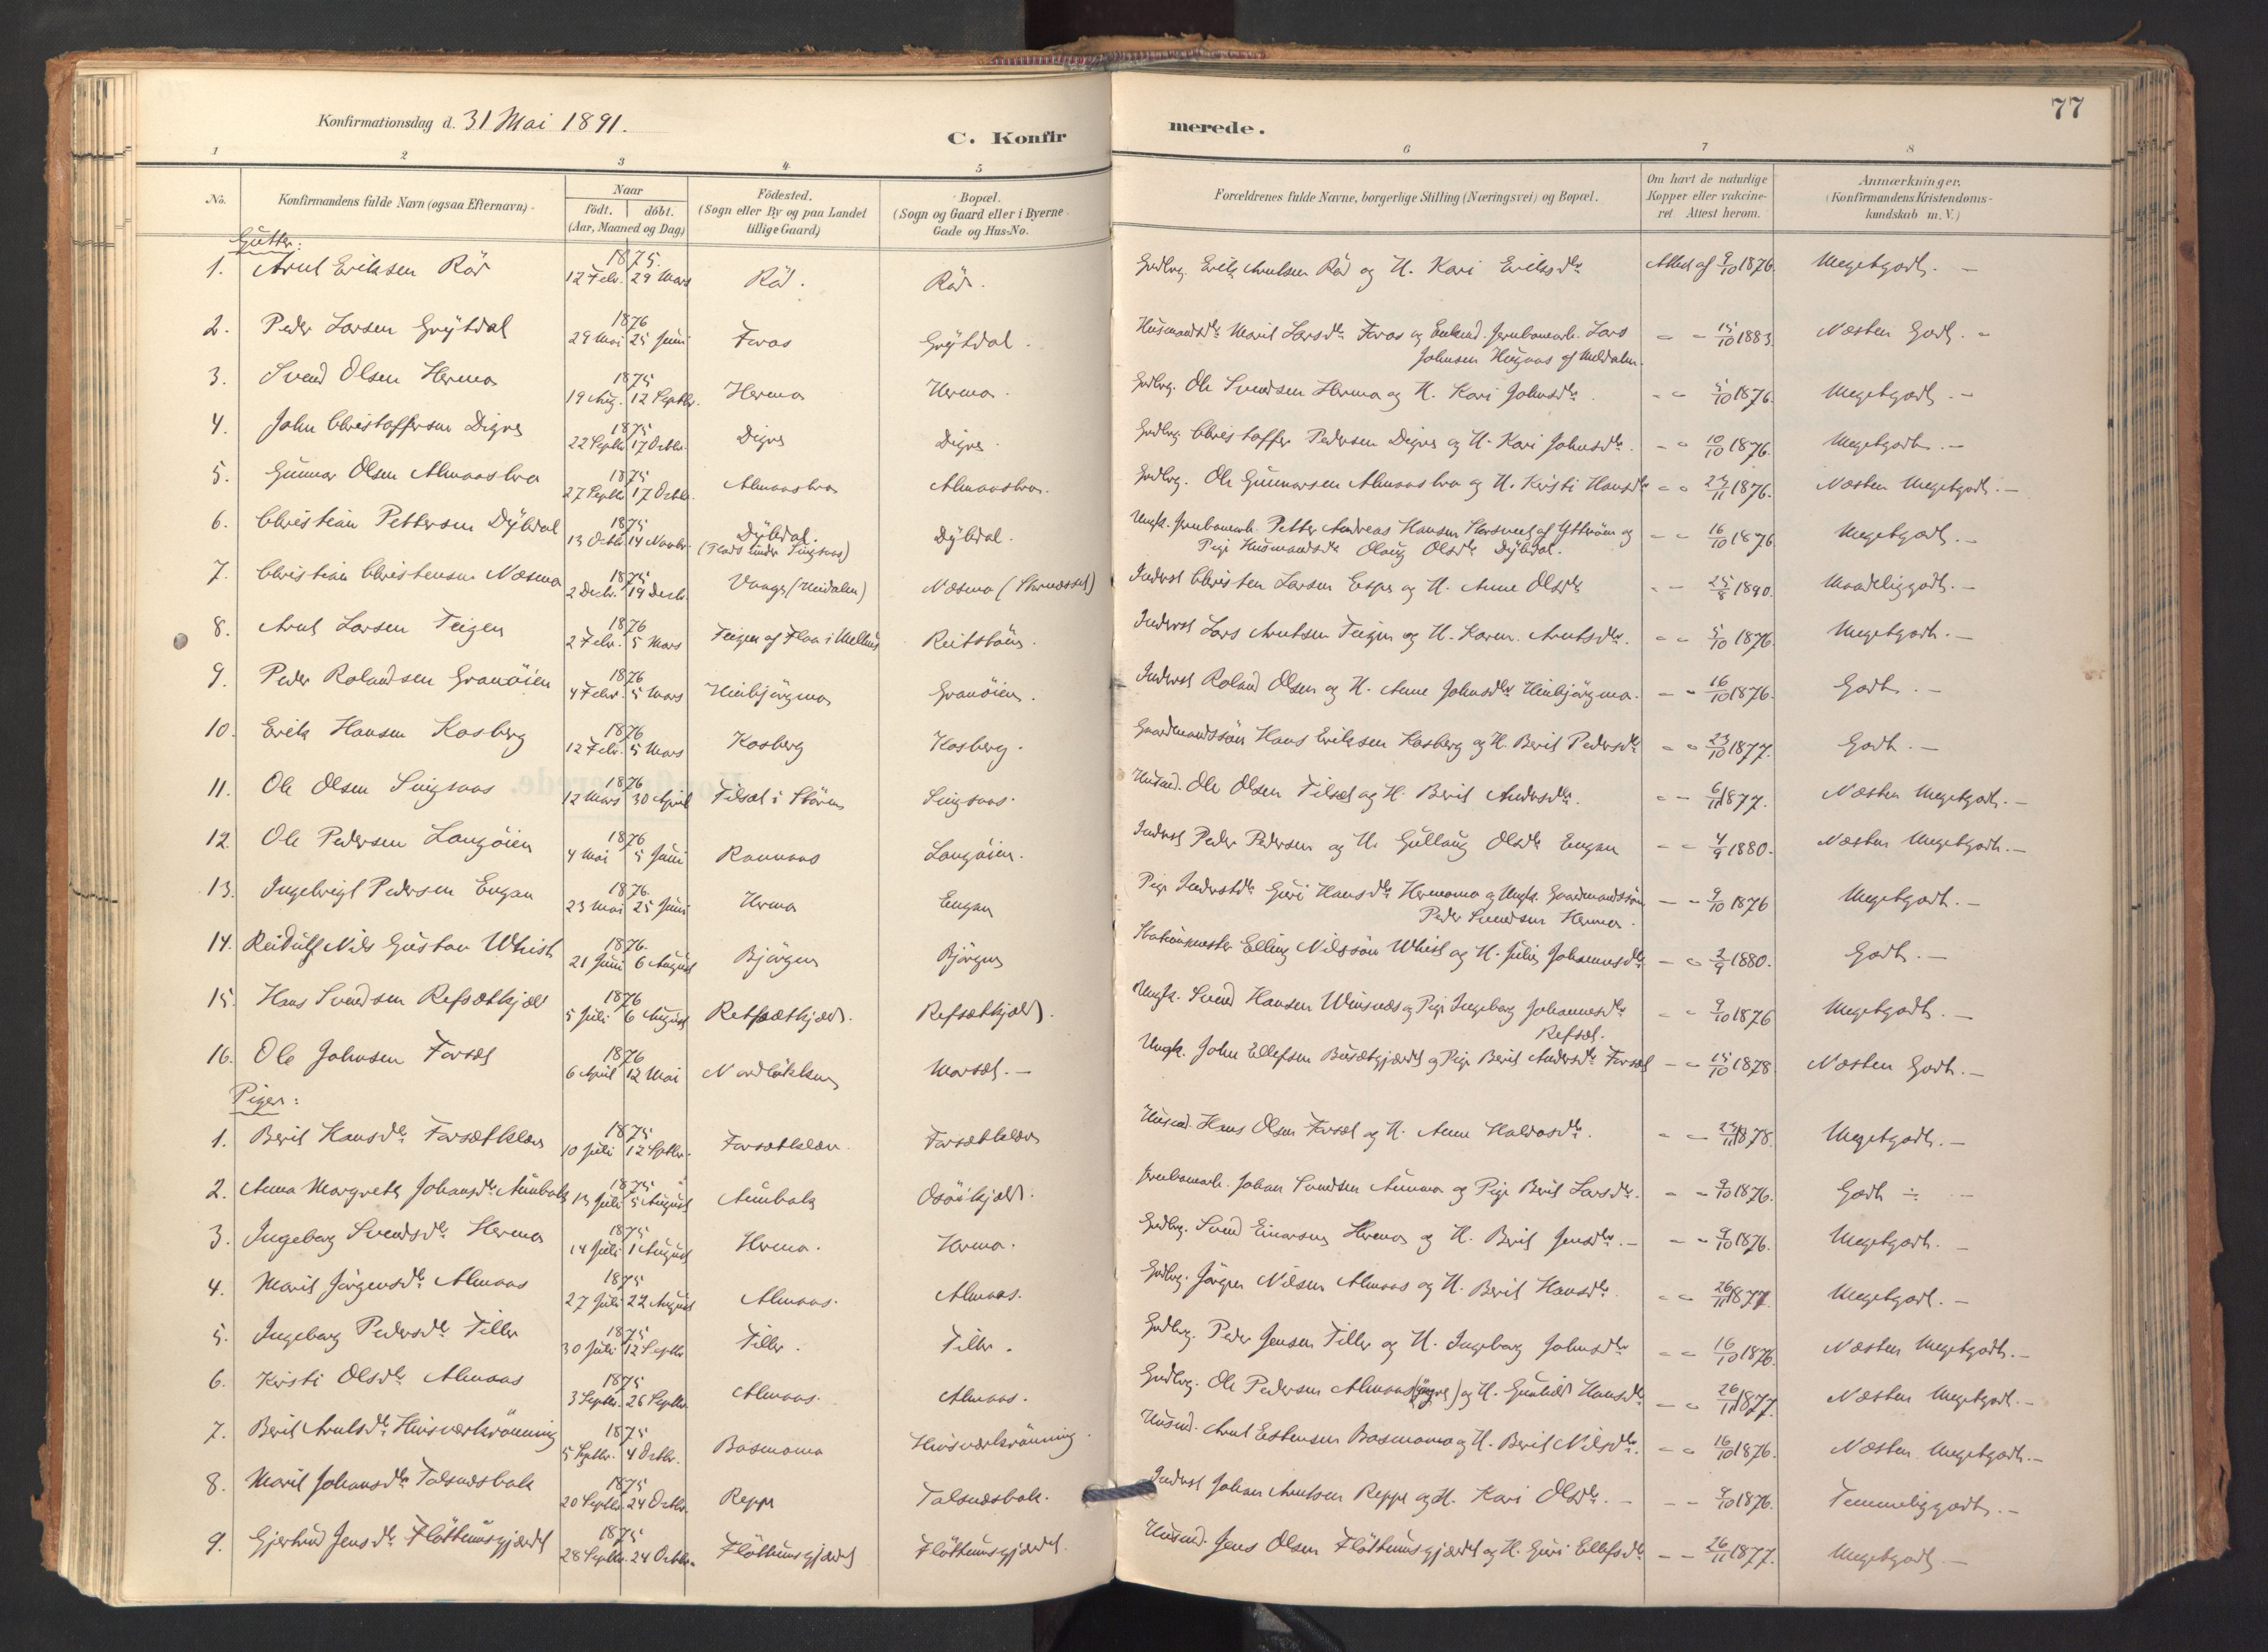 77
Konfirmationsdag d. 31 Mai 1891.
C. Konfirmerede.
1 2 3 4 5 6 7 8
No. Konfirmandens fulde Navn (ogsaa Efternavn). Naar födt. döbt. (Aar, Maaned og Dag) Födested. (Sogn eller By og paa Landet tillige Gaard) Bopæl. (Sogn og Gaard eller i Byerne Gade og Hus-No. Forældrenes fulde Navne, borgerlige Stilling (Næringsvei) og Bopæl. Om havt de naturlige Kopper eller vakcineret Attest herom. Anmærkninger. (Konfirmandens Kristendomskundskab m. V.)
Gutter:
1. Arnt Eriksen Röd 1875. 12 Febr. 29 Mars Röd. Röd. Gaardbrg. Erik Arntsen Röd og H. Kari Eriksdtr Attest af 9/10 1876. Megetgodt. -
2. Peder Larsen Grytdal 1876 29 Mai 25 Juni Foros Grytdal. Husmandsdtr Marit Larsdtr Foros og Jernbanearb. Lars
Johnsen Hugaas af Meldalen. - - 15/10 1883. Næsten Godt. -
3. Svend Olsen Herma 1875 19 Aug. 12 Septbr. Herma Herma. Gdbrg. Ole Svendsen Herma og H. Kari Johnsdtr. - - 5/10 1876. Megetgodt. -
4. John Christoffersen Digres 1875 22 Septbr. 17 Octbr. Digres Digres. Gdbrg. Christoffer Pedersen Digres og H. Kari Johnsdtr. - - 10/10 1876. Megetgodt. -
5. Gunnar Olsen Almaasbro 1875 27 Septbr 17 Octbr. Almaasbro Almaasbro. Gdbrg. Ole Gunnarsen Almaasbro og H. Kristi Hansdtr - - 1876. Næsten Megetgodt. -
6. Christian Pettersen Dybdal 1875 13 Octbr 14 Novbr. Dybdal. (Plads under Singsaas) Dybdal. Ungk. Jernbanearb. Petter Andreas Hansen af Ytteröen og
Pige Husmandsdtr Olaug Olsdtr Dybdal. - - 16/10 1876 Megetgodt. -
7. Christian Christensen Næsmo 1875 2 Decbr. 19 Decbr. Vange (Uindalen) Næsmo Inderst Christen Larsen Espes og H. Anne Olsdtr - - 25/8 1890. Maadeliggodt. -
8. Arnt Larsen Teigen 1876 2 Febr. 5 Mars Teigen af Flaa i Melhus Reitstöen. Inderst Lars Arntsen Teigen og H. Karen Arntsdtr. - - 5/10 1876. Megetgodt. -
9. Peder Rolandsen Granöien 1876 4 Febr. 5 Mars Hinbjörgmo Granöien. Inderst Roland Olsen og H. Anne Johnsdtr Hinbjörgmo. - - 16/10 1876. Godt. -
10. Erik Hansen Kosberg 1876 12 Febr. 5 Mars Kosberg Kosberg. Gaardmandssön Hans Eriksen Kosberg og H. Berit Pedersdtr - - 23/10 1877. Godt. -
11. Ole Olsen Singsaas 1876 12 Mars 30 April Tilset i Stören Singsaas. Husmd. Ole Olsen Tilset og H. Berit Andersdtr. - - 6/11 1877. Næsten Megetgodt. -
12 Ole Pedersen Langöien 1876 4 Mai 5 Juni Ramaas Langöien. Inderst Peder Pedersen og H. Gullaug Olsdtr Engan - - 4/9 1880. Næsten Megetgodt. -
13. Ingebrigt Pedersen Engan 1876. 23 Mai 25 Juni Herma Engan Pige Inderstdtr Guri Hansdtr Hermomo og Ungk. Gaardmandssön
Peder Svendsen Herma. - - 9/10 1876 Megetgodt. -
14. Reidulf Nils Gustav Whist 1876. 21 Juni 6 August Bjørgen Bjørgen Stationsmester Elling Nilssön Whist og H. Julie Johannesdtr - - 2/9 1880. Godt. -
15. Hans Svendsen Refsætkjeld 1876 5 Juli 6 August Refsætkjeld. Refsætkjeld. Ungk. Svend Hansen Winsnes og Pige Ingeborg Johannesdtr
Refset. - - 9/10 1876 Megetgodt. -
16. Ole Johnsen Forset 1876 6 April 12 Mai Nordlökken Morset. - Ungk. John Ellefsen Busetgjærdet og Pige Berit Andersdtr Forset - - 15/10 1878 Næsten Godt. -
Piger:
1. Berit Hansdtr Forsætkleev 1875 10 Juli 12 Septbr. Forsætkleev. Forsætkleev Husmd. Hans Olsen Forset og H. Anne Haldosdtr. - - 1878. Megetgodt. -
2. Anna Margrete Johansdtr Aunbak 1875 13 Juli 5 August Aunbak Osöikjeld. Jernbanearb. Johan Svendsen Aunmo og Pige Berit Larsdtr. - - 9/10 1876. Godt -
3. Ingeborg Svendsdtr Herma 1875 14 Juli 1 August Herma. Herma. Gdbrg. Svend Einarsen Herma og H. Berit Jensdtr. - - - 9/10 1876. Megetgodt. -
4. Marit Jörgensdtr Almaas 1875 27 Juli 22 August Almaas. Almaas. Gdbrg. Jörgen Nilsen Almaas og H. Berit Hansdtr. - - 26/11 1877. Megetgodt. -
5. Ingeborg Pedersdtr Tiller 1875 30 Juli 12 Septbr Tiller. Tiller. Gdbrg. Peder Jensen Tiller og H. Ingeborg Johnsdtr - - 16/10 1876. Næsten Megetgodt. -
6. Kristi Olsdtr Almaas 1875 3 Septbr. 26 Septbr. Almaas. Almaas. Gdbrg. Ole Pedersen Almaas og H. Gunhild Hansdtr - - 26/11 1877. Næsten Megetgodt. -
7. Berit Arntsdtr Hinsværkrönning 1875 5 Septbr. 4 Octbr. Bosmomo Hinsværkrönning. Husmd. Arnt Estensen Bosmomo og H. Berit Nilsdtr. - - 16/10 1876. Næsten Megetgodt. -
8. Marit Johansdtr Talsnesbak 1875 20 Septbr. 24 Octbr. Reppe Talsnesbak. Inderst Johan Arntsen Reppe og H. Kari Olsdtr. - - - 9/10 1876. Temmeliggodt. -
9. Gjertrud Jensdtr Flöttumsgjærdet 1875 28 Septbr. 24 Octbr. Flöttumsgjærdet Flöttumsgjærdet. Husmd. Jens Olsen Flöttumsgjærdet og H. Guri Ellefsdtr - - 26/11 1877. Megetgodt. -